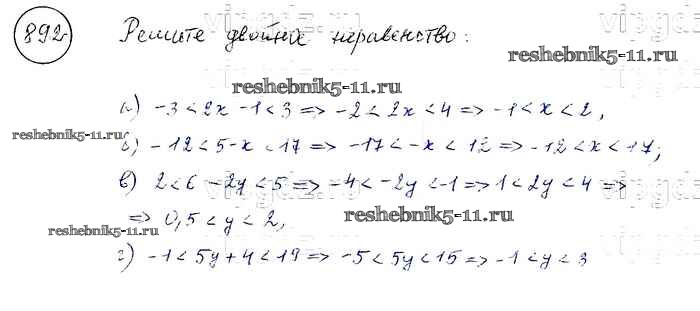 892 Решите двойное неравенство:
reshebnik5-11.ru
reshebnik5-11.ru
а) -3 < 2x - 1 < 3 => -2 < 2x < 4 => -1 < x < 2,
reshebnik5-11.ru
б) -12 < 5 - x < 17 => -17 < -x < 12 => -12 < x < 17;
в) 2 < 6 - 2y < 5 => -4 < -2y < -1 => 1 < 2y < 4 =>
=> 0,5 < y < 2,
reshebnik5-11.ru
reshebnik5-11.ru
г) -1 < 5y + 4 < 19 => -5 < 5y < 15 => -1 < y < 3
vipgdz